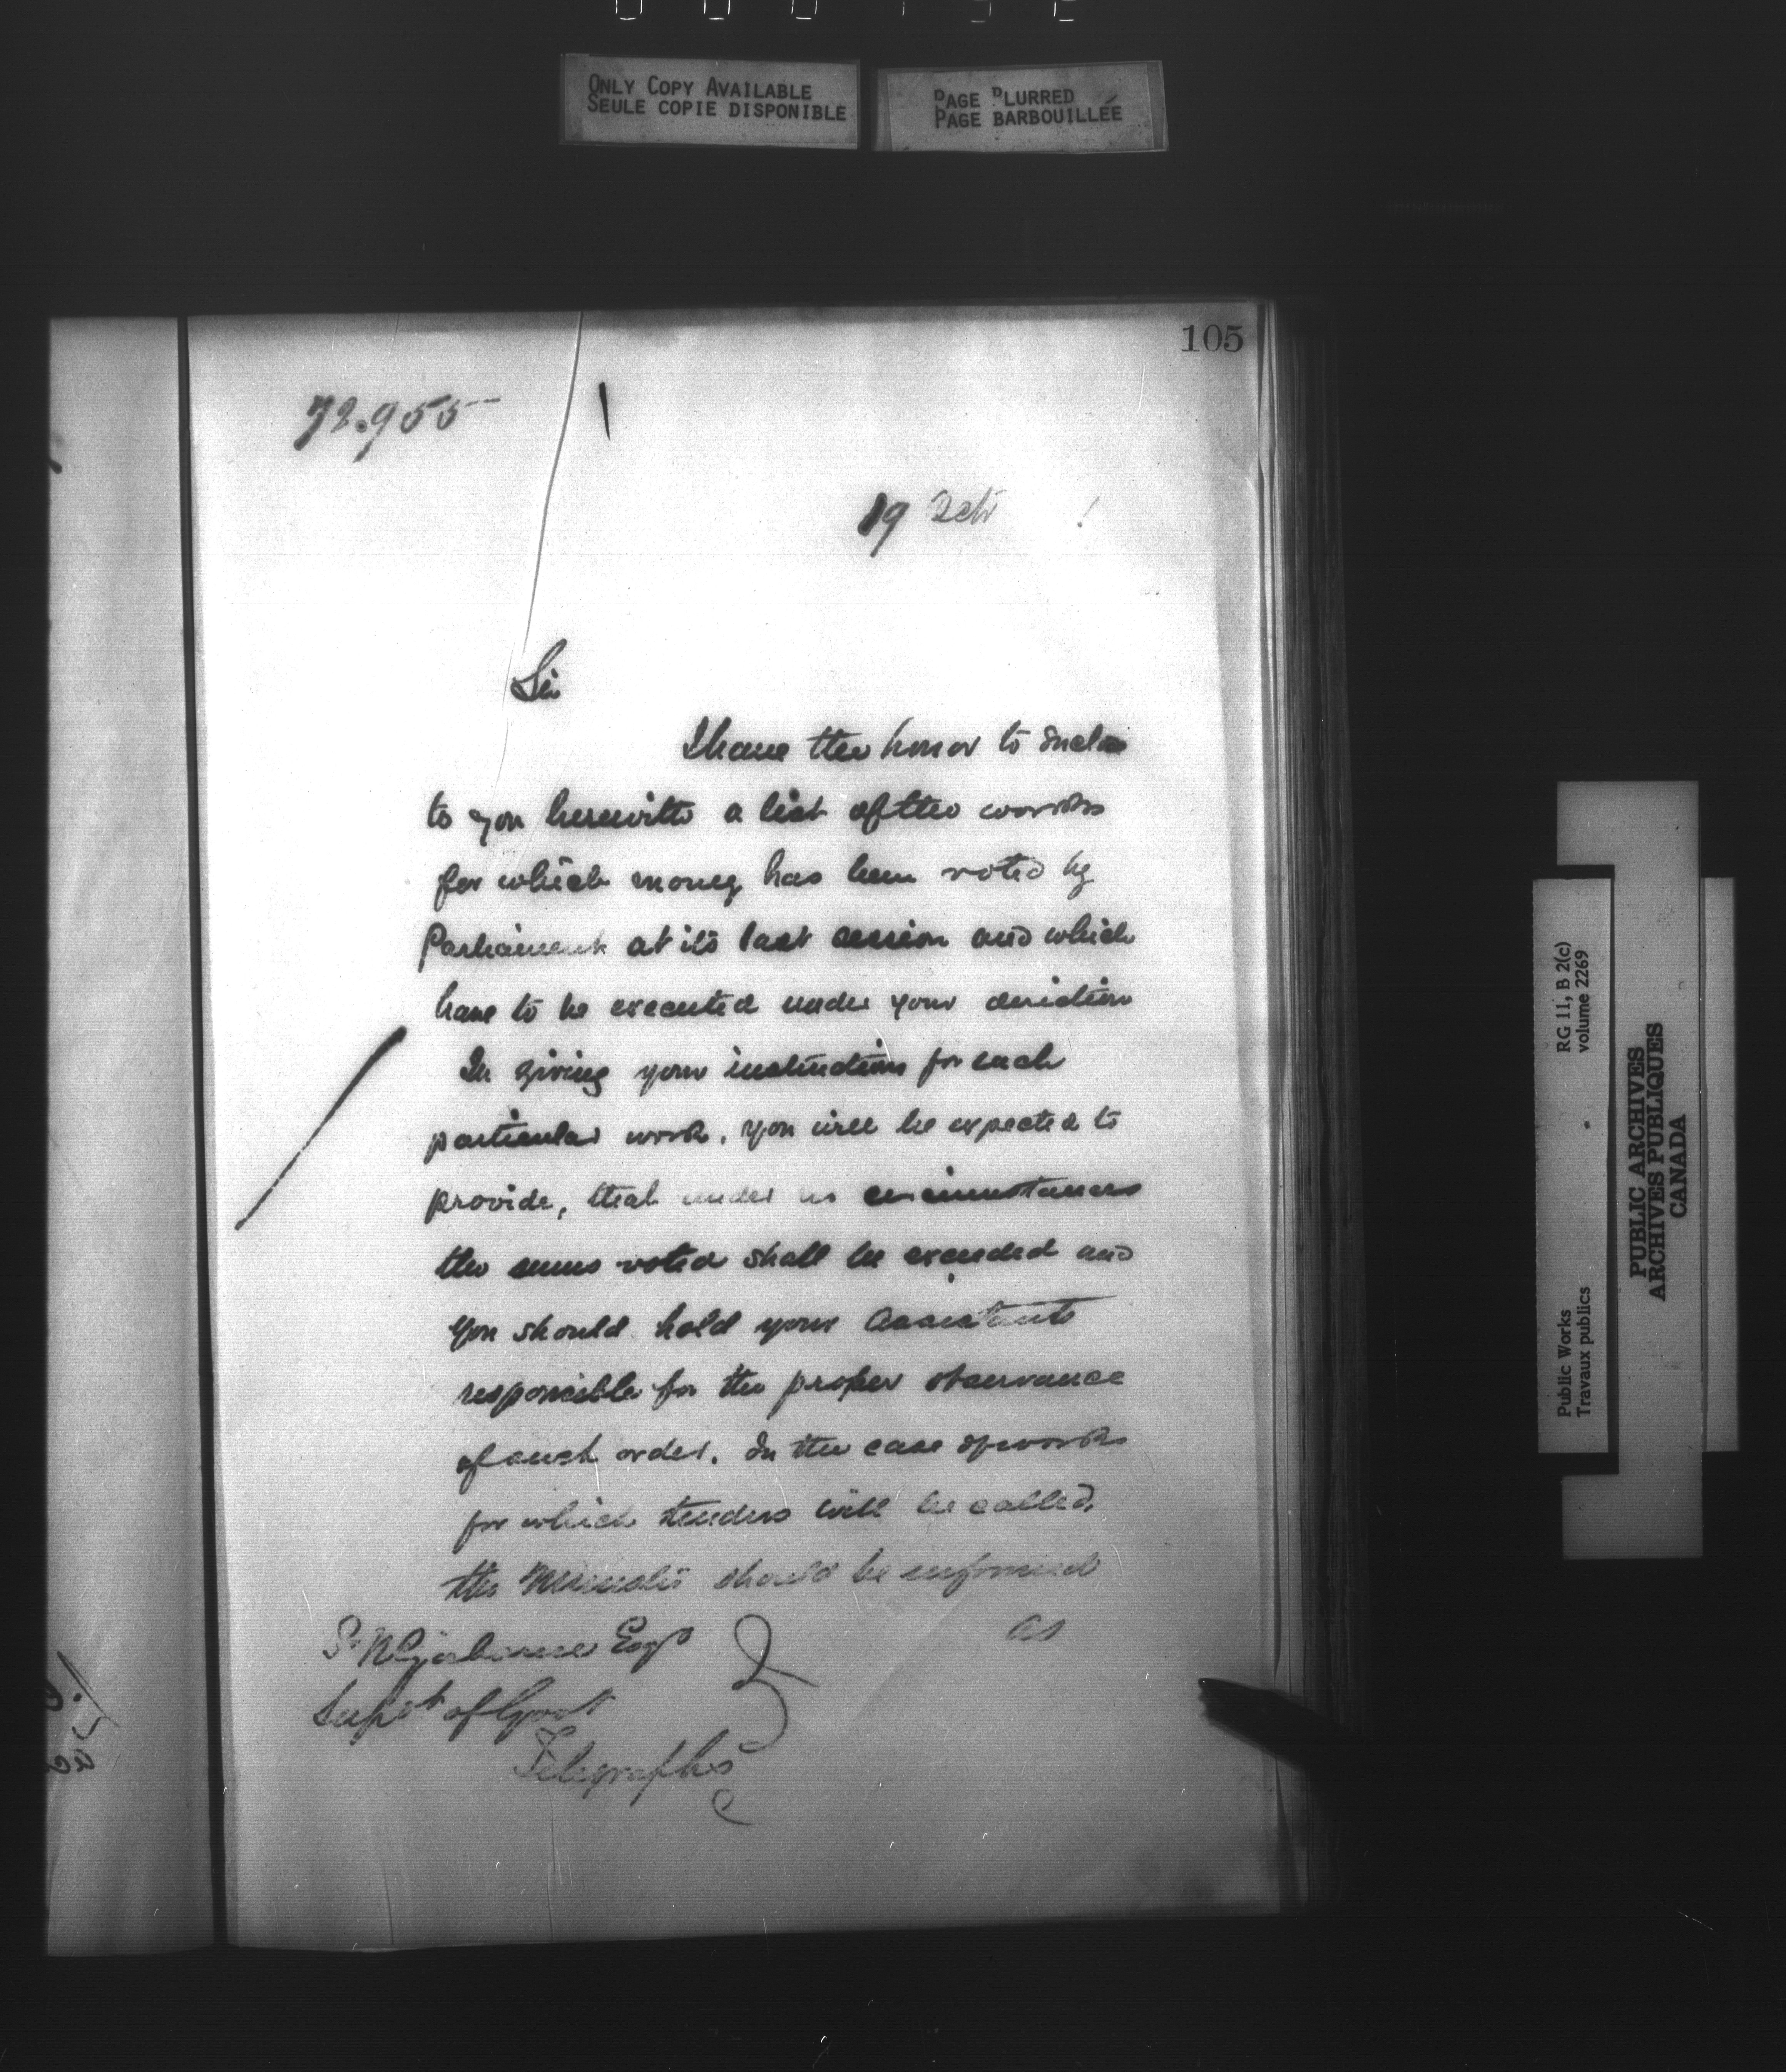 ONLY COPY AVAILABLE
SEULE COPIE DISPONIBLE
PAGE BLURRED
PAGE BARBOUILLÉE
105
72.955
19
Sir
I have the honor to enclose
to you herewith a list of the works
for which money has been voted by
Parliament at its last session and which
have to be executed under your direction
In giving your instructions for each
particular work, you will be expected to
provide, that under no circumstances
the sums voted shall be exceeded and
you should hold your assistants
responsible for the proper observance
of such order. In the case of works
for which tenders will be called,
the Minister should be informed
as
F N Gisborne Esq
Supt of Govt
Telegraphs
Public Works
Travaux publics
RG 11, B 2(c)
volume 2269
PUBLIC ARCHIVES
ARCHIVES PUBLIQUES
CANADA